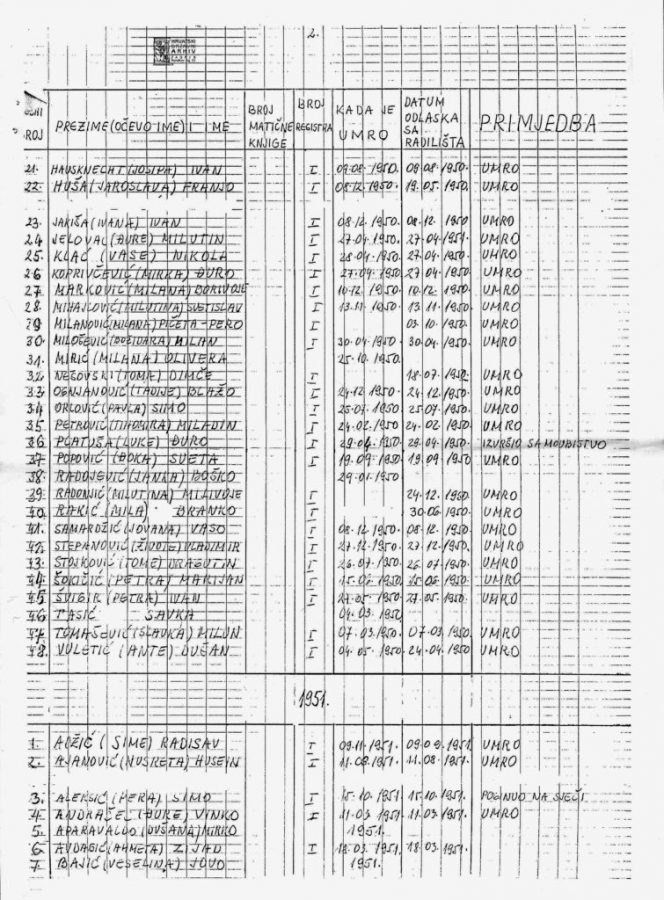 2.
HRVATSKI
DRŽAVNI
ARHIV
BROJ PREZIME (OČEVO IME) I IME BROJ MATIČNE KNJIGE BROJ REGISTRA KADA JE UMRO DATUM ODLASKA SA RADILIŠTA PRIMJEDBA
21. HAUSKNECHT (JOSIPA) IVAN I 09.08.1950. 09.08.1950. UMRO
22. HUŠA (JAROSLAVA) FRANJO I 08.12.1950. 19.05.1950. UMRO
23. JAKIŠA (IVANA) IVAN I 08.12.1950. 08.12.1950 UMRO
24 JELOVAC (ĐURE) MILUTIN I 27.04.1950. 27.04.1951. UMRO
25. KLAĆ (VASE) NIKOLA I 28.04.1950. 27.04.1950 UMRO
26 KOPRIVČEVIĆ (MIRKA) ĐURO I 27.04.1950 27.04.1950 UMRO
27 MARKOVIĆ (MILANA) BORIVOJE I 10.12.1950 10.12.1950 UMRO
28. MIHAJLOVIĆ (MILUTINA) SVETISLAV I 13.11.1950. 13.11.1950 UMRO
29 MILANOVIĆ (MILANA) PIČETA-PERO I 03.10.1950. UMRO
30 MILOČEVIĆ (BOŽIDARA) MILAN I 30.04.1950 30.04.1950. UMRO
31. MIRIĆ (MILANA) OLIVERA 25.10.1950.
32 NEŠOVSKI (TOMA) DIMČE I 18.07.1950. UMRO
33 OGNJANOVIĆ (TADIJE) BLAŽO I 24.12.1950. 24.12.1950. UMRO
34 ORLOVIĆ (PAVLA) SIMO I 25.04.1950 25.04.1950. UMRO
35 PETROVIĆ (TIHOMIRA) MILADIN I 24.02.1950 24.02.1950 UMRO
36 PLATUŠA (LUKE) ĐURO I 29.04.1950 29.04.1950 IZVRŠIO SAMOUBISTVO
37 POPOVIĆ (ĐOKA) SVETA I 19.09.1950 19.09.1950 UMRO
38. RADOJEVIĆ (JANKA) BOŠKO 29.01.1950
39. RADONJIĆ (MILUTINA) MILIVOJE I 24.12.1950 UMRO
40. RAKIĆ (MILA) BRANKO I 30.06.1950 UMRO
41. SAMARDŽIĆ (JOVANA) VASO I 08.12.1950 08.12.1950. UMRO
42. STEPANOVIĆ (ŽIVOJE) VLADIMIR I 27.12.1950. 27.12.1950. UMRO
43. STOJKOVIĆ (TOME) DRAGUTIN I 26.07.1950. 26.07.1950. UMRO
44. ŠOKIČIĆ (PETRA) MARIJAN I 15.06.1950. 15.06.1950 UMRO
45 ŠVIGIR (PETRA) IVAN I 27.05.1950 27.05.1950 UMRO
46 TASIĆ SAVKA 04.03.1950
47 TOMAŠEVIĆ (SLAVKA) MILUN I 07.03.1950. 07.03.1950 UMRO
48. VULETIĆ (ANTE) DUŠAN I 04.05.1950 24.04.1950 UMRO
1951.
1. ADŽIĆ (SIME) RADISAV I 09.11.1951. 09.09.1951. UMRO
2. AJANOVIĆ (NUSRETA) HUSEIN I 11.08.1951. 11.08.1951. UMRO
3. ALEKSIĆ (PERA) SIMO I 15.10.1951. 15.10.1951. POGINUO NA SJEČI
4. ANDRAČE (ĐURE) VINKO I 11.03.1951. 11.03.1951. UMRO
5. APARAVALDO (DUŠANA) MIRKO 1951.
6 AVDAGIĆ (AHMETA) ZIJAD I 18.03.1951. 18.03.1951.
7. BAJIĆ (VESELINA) JOVO 1951.